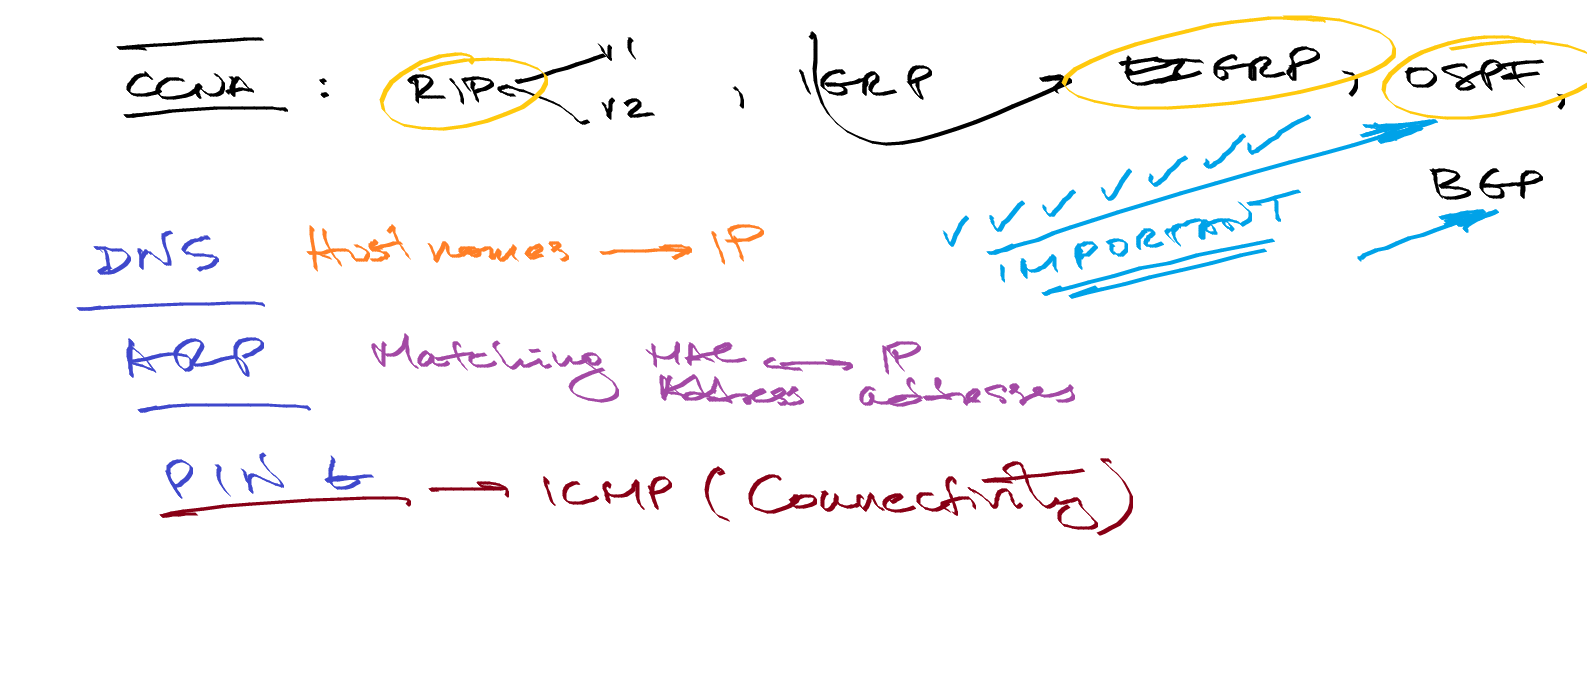 CCNA : RIP v1 v2 , IGRP EIGRP , OSPF ,
BGP
IMPORTANT
DNS Host names → IP
ARP Matching MAC ↔ IP
Address addresses
PING → ICMP (Connectivity)